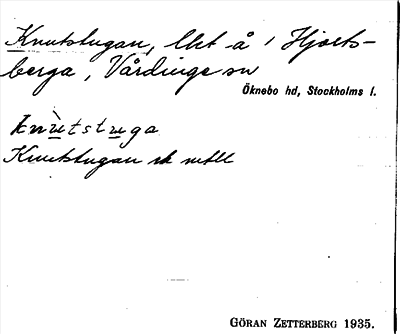 Knutstugan, lht å 1 Hjorts-
berga, Vårdinge sn
Öknebo hd, Stockholms l.
knùtstuga
Knutstugan
GÖRAN ZETTERBERG 1935.